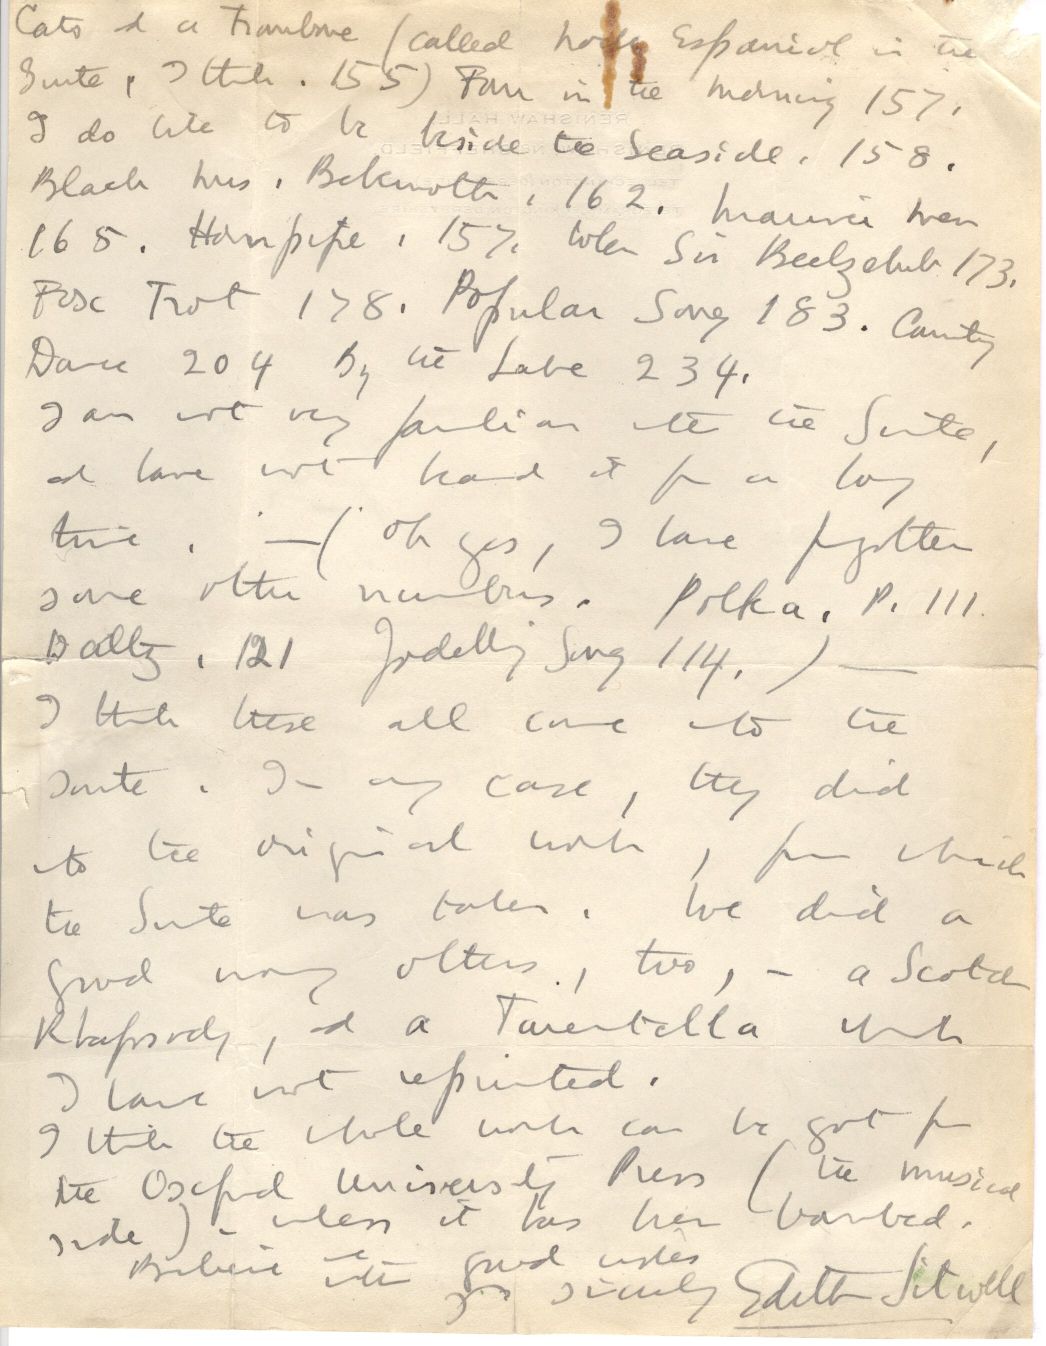 Cats and a Trombone (called Noche Espagnole in the
Suite, I think. 155) Four in the Morning 157.
RENISHAW HALL
I do like to be beside the Seaside. 158.
Black Mrs. Behemoth. 162. Mariner Men
165. Hornpipe. 157. When Sir Beelzebub 173.
Fox Trot 178. Popular Song 183. Country
Dance 204 By the Lake 234.
I am not very familiar with the Suite,
and have not heard it for a long
time. — (Oh yes, I have forgotten
some other numbers. Polka. P. 111.
Waltz. 121 Jodelling Song 114.) —
I think these all came into the
Suite. In any case, they did
into the original work, from which
the Suite was taken. We did a
good many others, too, – a Scotch
Rhapsody, and a Tarentella which
I have not reprinted.
I think the whole work can be got from
the Oxford University Press (the musical
side) – unless it has been bombed.
Believe me
with good wishes
yours sincerely Edith Sitwell